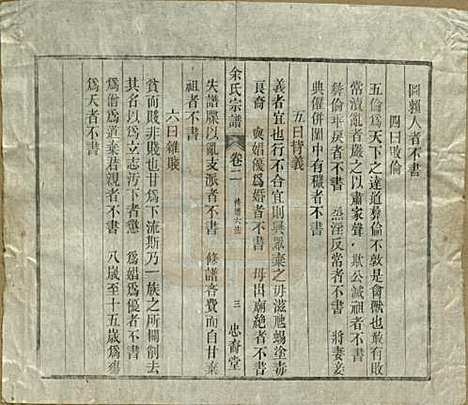 圖賴人者不書
四曰敗倫
五倫爲天下之達道彝倫不敘是禽獸也或
常瀆亂者嚴之以肅家聲 欺公滅祖者不書
彝倫乖戾者不書 烝淫反常者不書 將妻妾
典僱併圖中有穢者不書
五曰背義
義者宜也行不合宜則與衆棄之毋滋虺蜴塗毒
良裔 與娼優爲婚者不書 毋出廟絶者不書
余氏宗譜 卷二 修譜六法 三 忠裔堂
失譜牒以亂支派者不書 修譜吝費而自甘棄
祖者不書
六曰雜賤
貧而賤非賤也甘爲下流斯乃一族之所關削去
其名以爲立志汚下者懲 爲娼爲優者不書
爲僧爲道棄君親者不書 八歲至十五歲爲殤
爲夭者不書